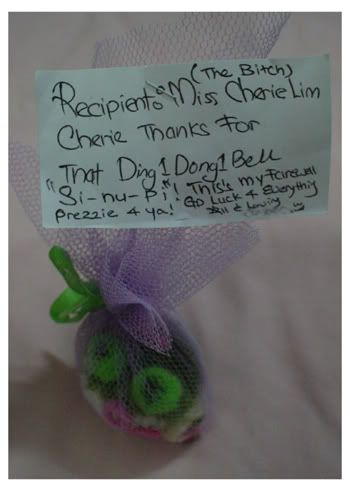 (The Bitch)
Recipient: Miss Cherie Lim
Cherie Thanks For
That Ding 1 Dong 1 Bell
"Si-nu-pi"! This's my Farewell
Prezzie 4 ya! GD Luck 4 Everything